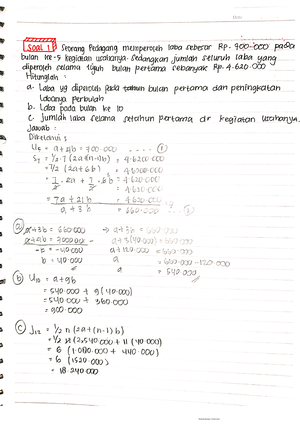 Soal 1 Seorang Pedagang memperoleh laba sebesar Rp. 700.000 pada
bulan ke-5 kegiatan usahanya. Sedangkan jumlah seluruh laba yang
diperoleh selama tujuh bulan pertama sebanyak Rp. 4.620.000
Hitunglah :
a. Laba yg diperoleh pada bulan pertama dan peningkatan
labanya perbulan
b. Laba pada bulan ke 10
c. Jumlah laba selama setahun pertama dr kegiatan usahanya.
Jawab :
Diketahui :
U5 = a+4b = 700.000 ---- (1)
S7 = 1/2.7 (2a+(n-1)b) = 4.620.000
= 7/2 (2a+6b) = 4.620.000
= 7/2 . 2a + 7/2 . 6b = 4.620.000
= 4.620.000
= 7a + 21b = 4.620.000
a + 3b = 660.000 --- (2)
(a) a+3b = 660.000 → a+3b = 660.000
a+4b = 700.000 - a+3(40.000) = 660.000
-b = -40.000 a+120.000 = 660.000
b = 40.000 a = 660.000 - 120.000
a = 540.000
(b) U10 = a+9b
= 540.000 + 9(40.000)
= 540.000 + 360.000
= 900.000
(c) J12 = 1/2 n (2a+(n-1)b)
= 1/2 12 (2.540.000 + 11 (40.000)
= 6 (1.080.000 + 440.000)
= 6 (1520.000)
= 18.240.000